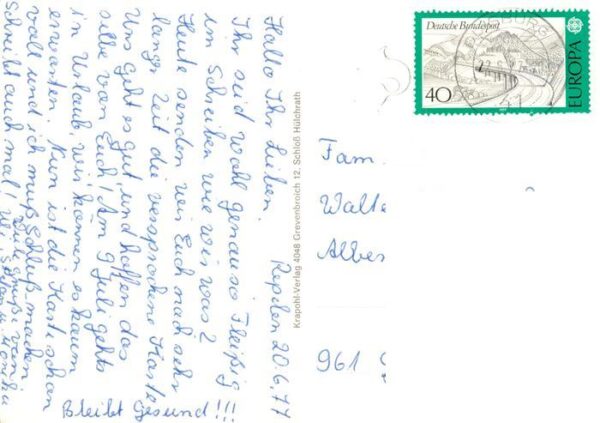 Repelen 20.6.77
Hallo Ihr Lieben.
Ihr seid wohl genauso Fleißig
im Schreiben wie wir was?
Heute senden wir Euch nach sehr
langer Zeit die versprochene Karte
Uns geht es gut, und hoffen das
selbe von Euch! Am 9 Juli gehts
in Urlaub, wir können es kaum
erwarten. Nun ist die Karte schon
voll und ich muß Schluß machen
schreibt auch mal! Viele Grüße von
Bleibt Gesund!!!
Krapohl-Verlag 4048 Grevenbroich 12, Schloß Hülchrath
Deutsche Bundespost
EUROPA
40
Fam.
Walte
Alber
961